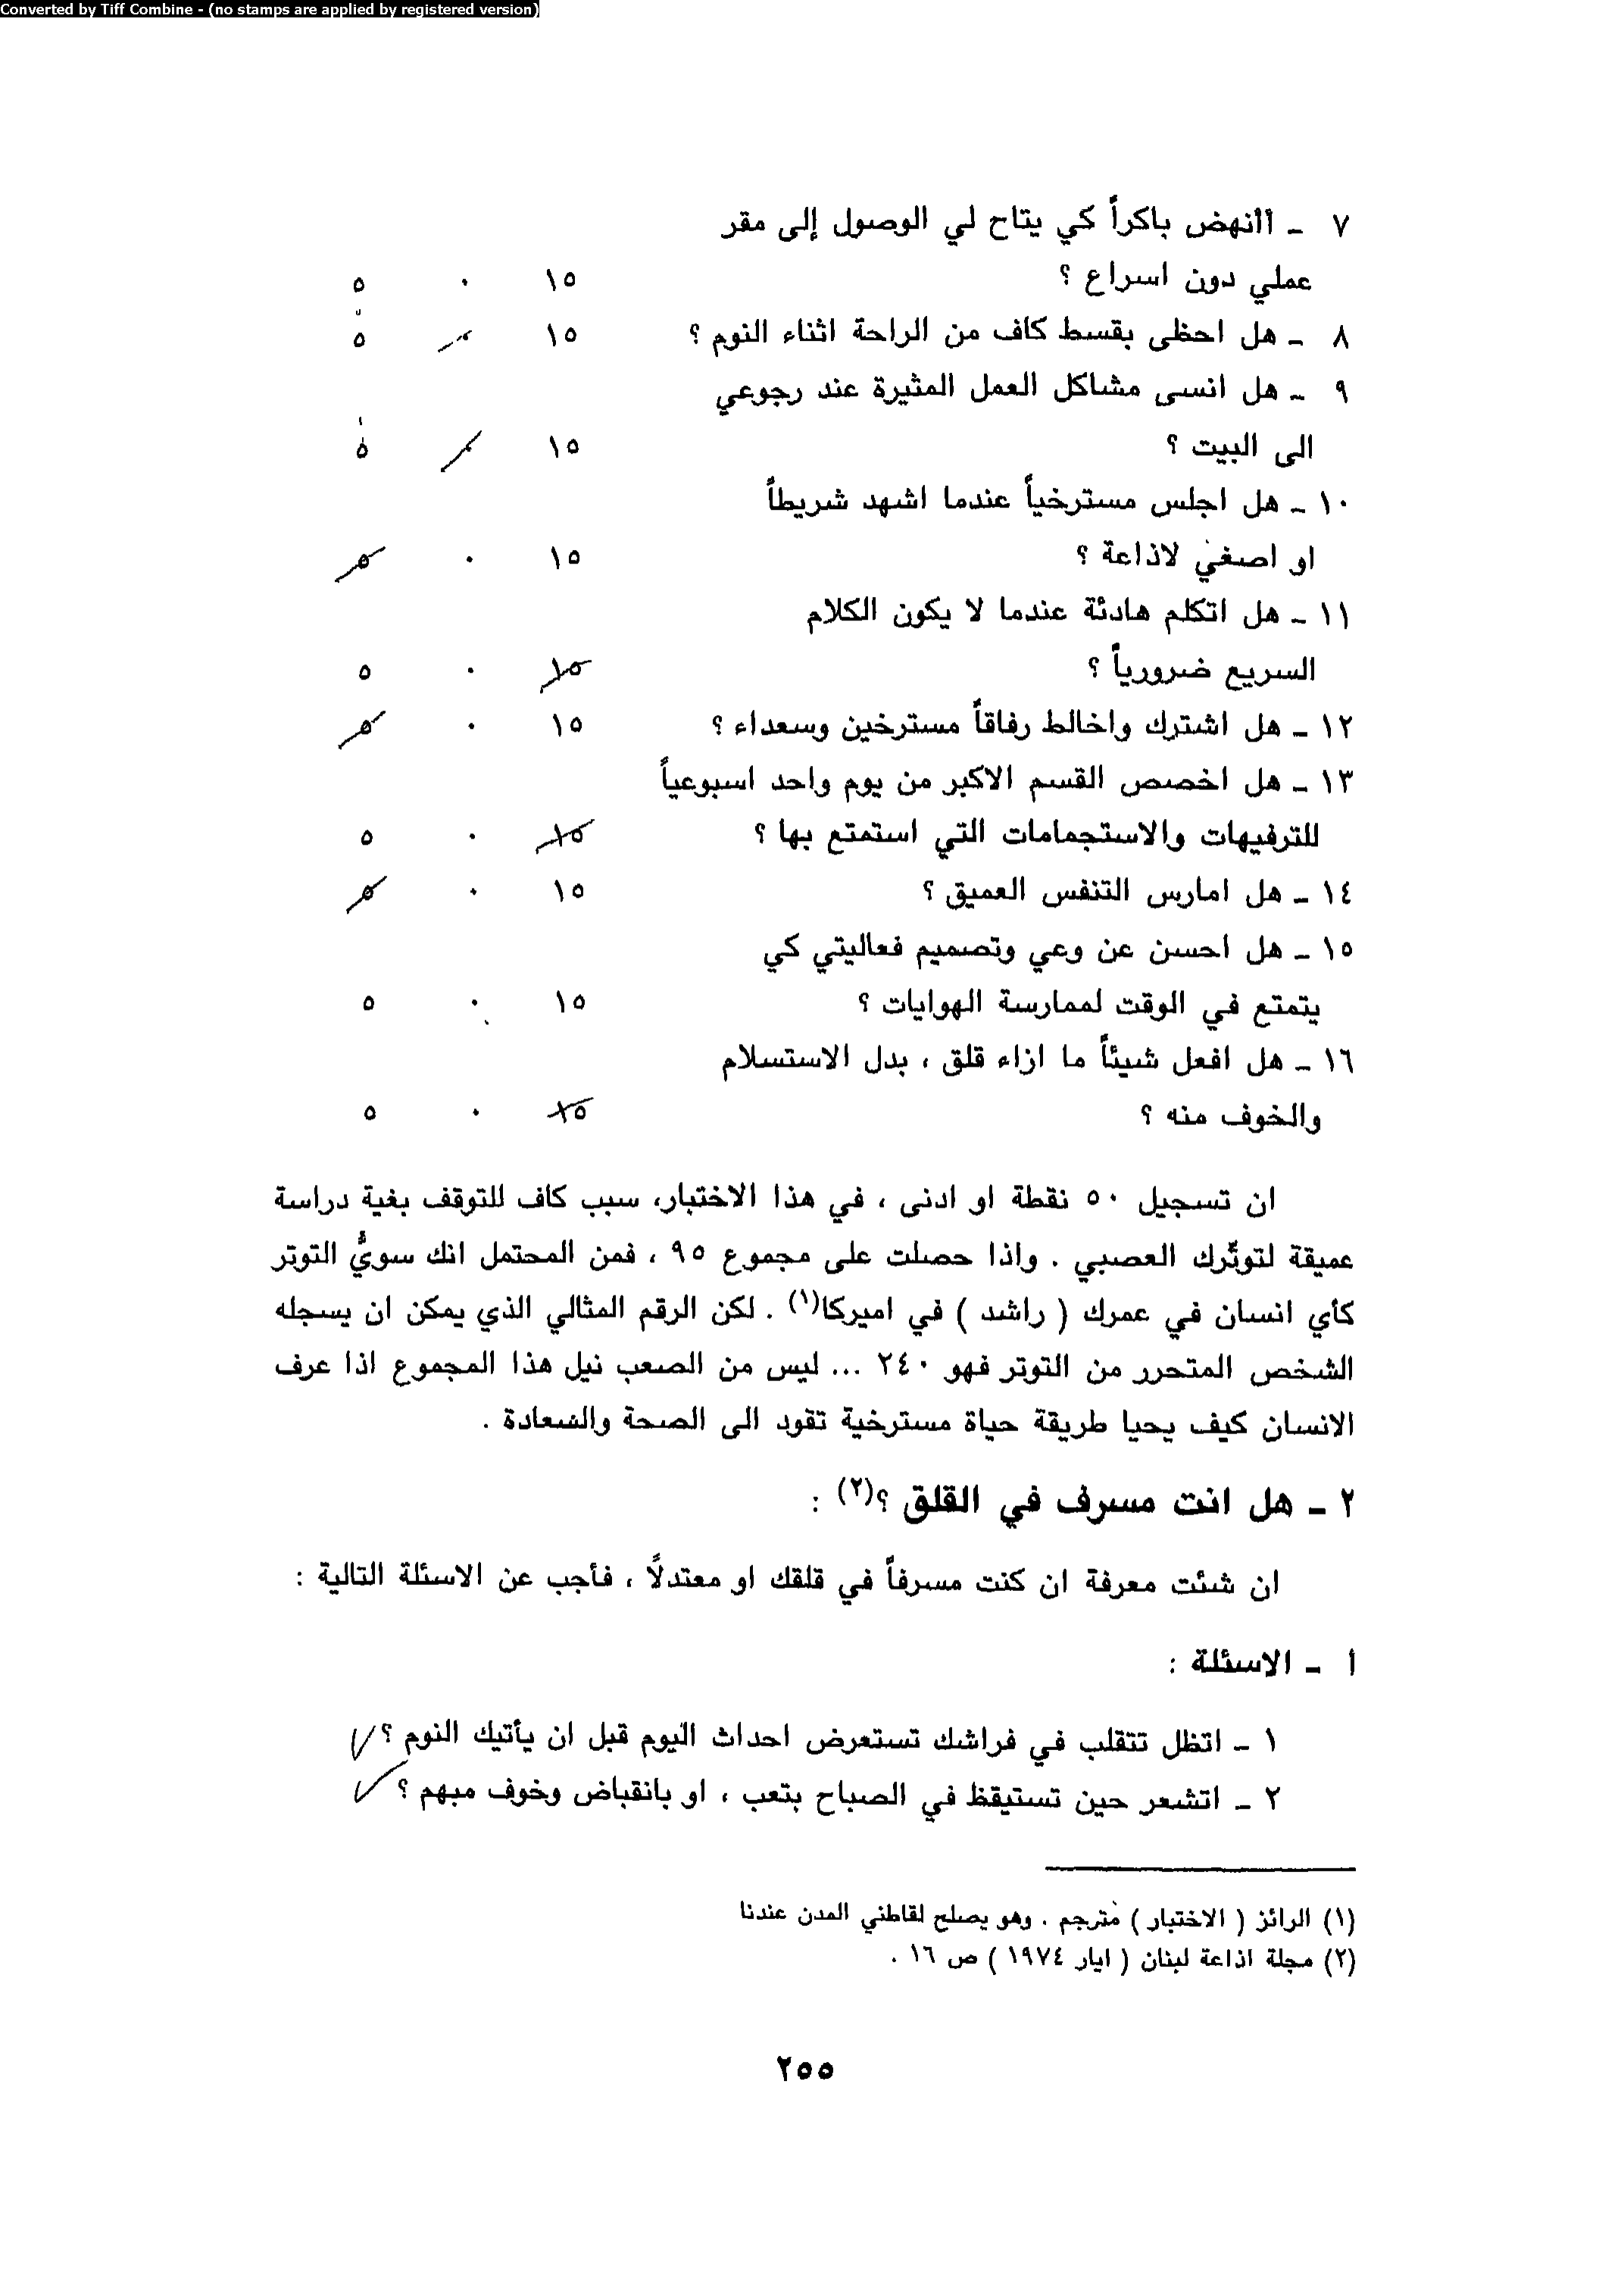 Converted by Tiff Combine - (no stamps are applied by registered version)
٧ - أأنهض باكراً كي يتاح لي الوصول إلى مقر
عملي دون اسراع ؟ ١٥ ٠ ٥
٨ - هل احظى بقسط كاف من الراحة اثناء النوم ؟ ١٥ ٠ ٥
٩ - هل انسى مشاكل العمل المثيرة عند رجوعي
الى البيت ؟ ١٥ ٠ ٥
١٠ - هل اجلس مسترخياً عندما اشهد شريطاً
او اصغي لاذاعة ؟ ١٥ ٠ ٥
١١ - هل اتكلم هادئة عندما لا يكون الكلام
السريع ضرورياً ؟ ١٥ ٠ ٥
١٢ - هل اشترك واخالط رفاقاً مسترخين وسعداء ؟ ١٥ ٠ ٥
١٣ - هل اخصص القسم الاكبر من يوم واحد اسبوعياً
للترفيهات والاستجمامات التي استمتع بها ؟ ١٥ ٠ ٥
١٤ - هل امارس التنفس العميق ؟ ١٥ ٠ ٥
١٥ - هل احسن عن وعي وتصميم فعاليتي كي
يتمتع في الوقت لممارسة الهوايات ؟ ١٥ ٠ ٥
١٦ - هل افعل شيئاً ما ازاء قلق ، بدل الاستسلام
والخوف منه ؟ ١٥ ٠ ٥
ان تسجيل ٥٠ نقطة او ادنى ، في هذا الاختبار، سبب كاف للتوقف بغية دراسة
عميقة لتوتّرك العصبي . واذا حصلت على مجموع ٩٥ ، فمن المحتمل انك سويُّ التوتر
كأي انسان في عمرك ( راشد ) في اميركا(١) . لكن الرقم المثالي الذي يمكن ان يسجله
الشخص المتحرر من التوتر فهو ٢٤٠ ... ليس من الصعب نيل هذا المجموع اذا عرف
الانسان كيف يحيا طريقة حياة مسترخية تقود الى الصحة والسعادة .
٢ - هل انت مسرف في القلق ؟(٢) :
ان شئت معرفة ان كنت مسرفاً في قلقك او معتدلاً ، فأجب عن الاسئلة التالية :
ا - الاسئلة :
١ - اتظل تتقلب في فراشك تستعرض احداث اليوم قبل ان يأتيك النوم ؟ ✓
٢ - اتشعر حين تستيقظ في الصباح بتعب ، او بانقباض وخوف مبهم ؟ ✓
(١) الرائز ( الاختبار ) مترجم . وهو يصلح لقاطني المدن عندنا
(٢) مجلة اذاعة لبنان ( ايار ١٩٧٤ ) ص ١٦ .
٢٥٥